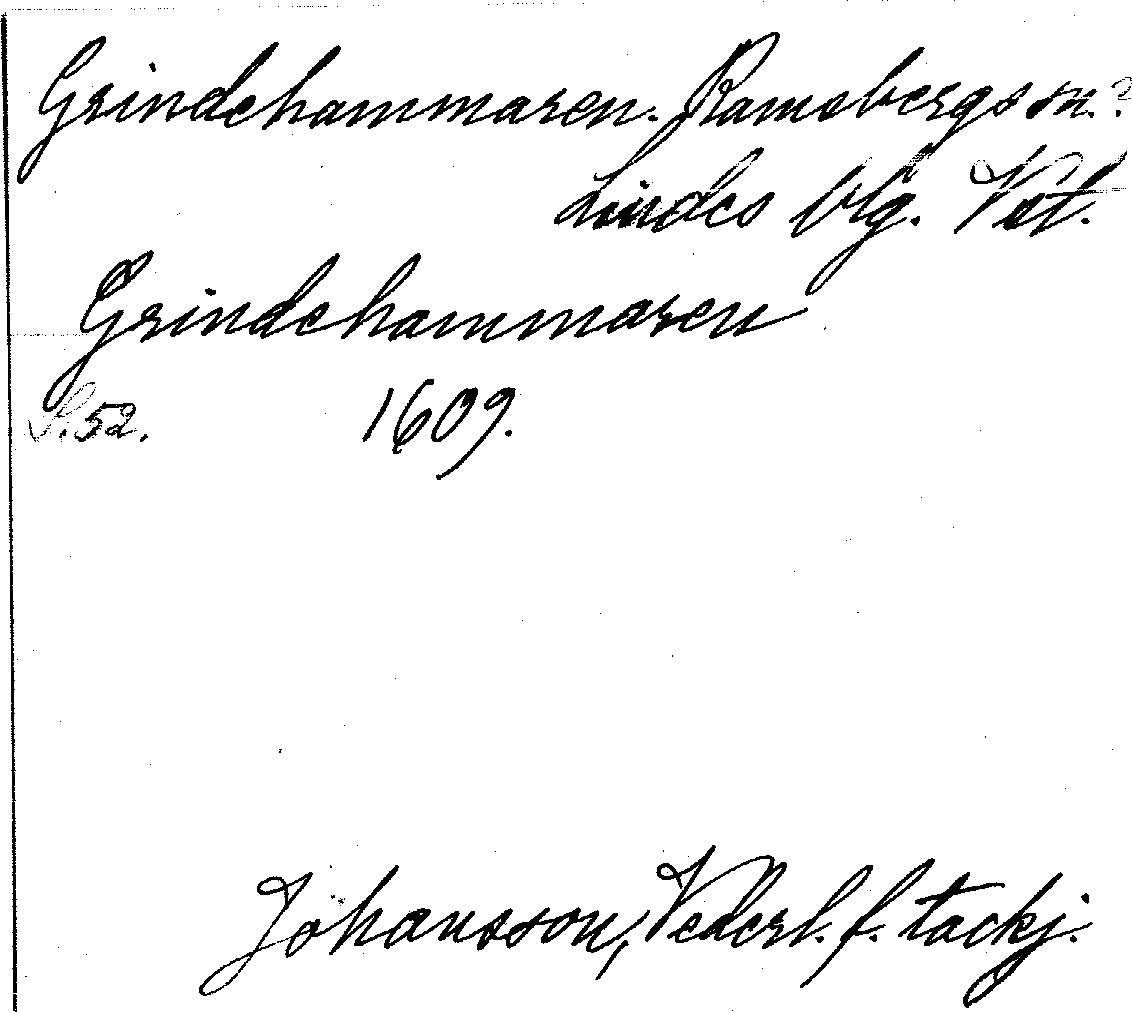 Grindehammaren. Ramsbergs sn.?
Lindes blg. Vst.
Grindehammaren
S. 52. 1609.
Johansson, Vederl. f. tackj.